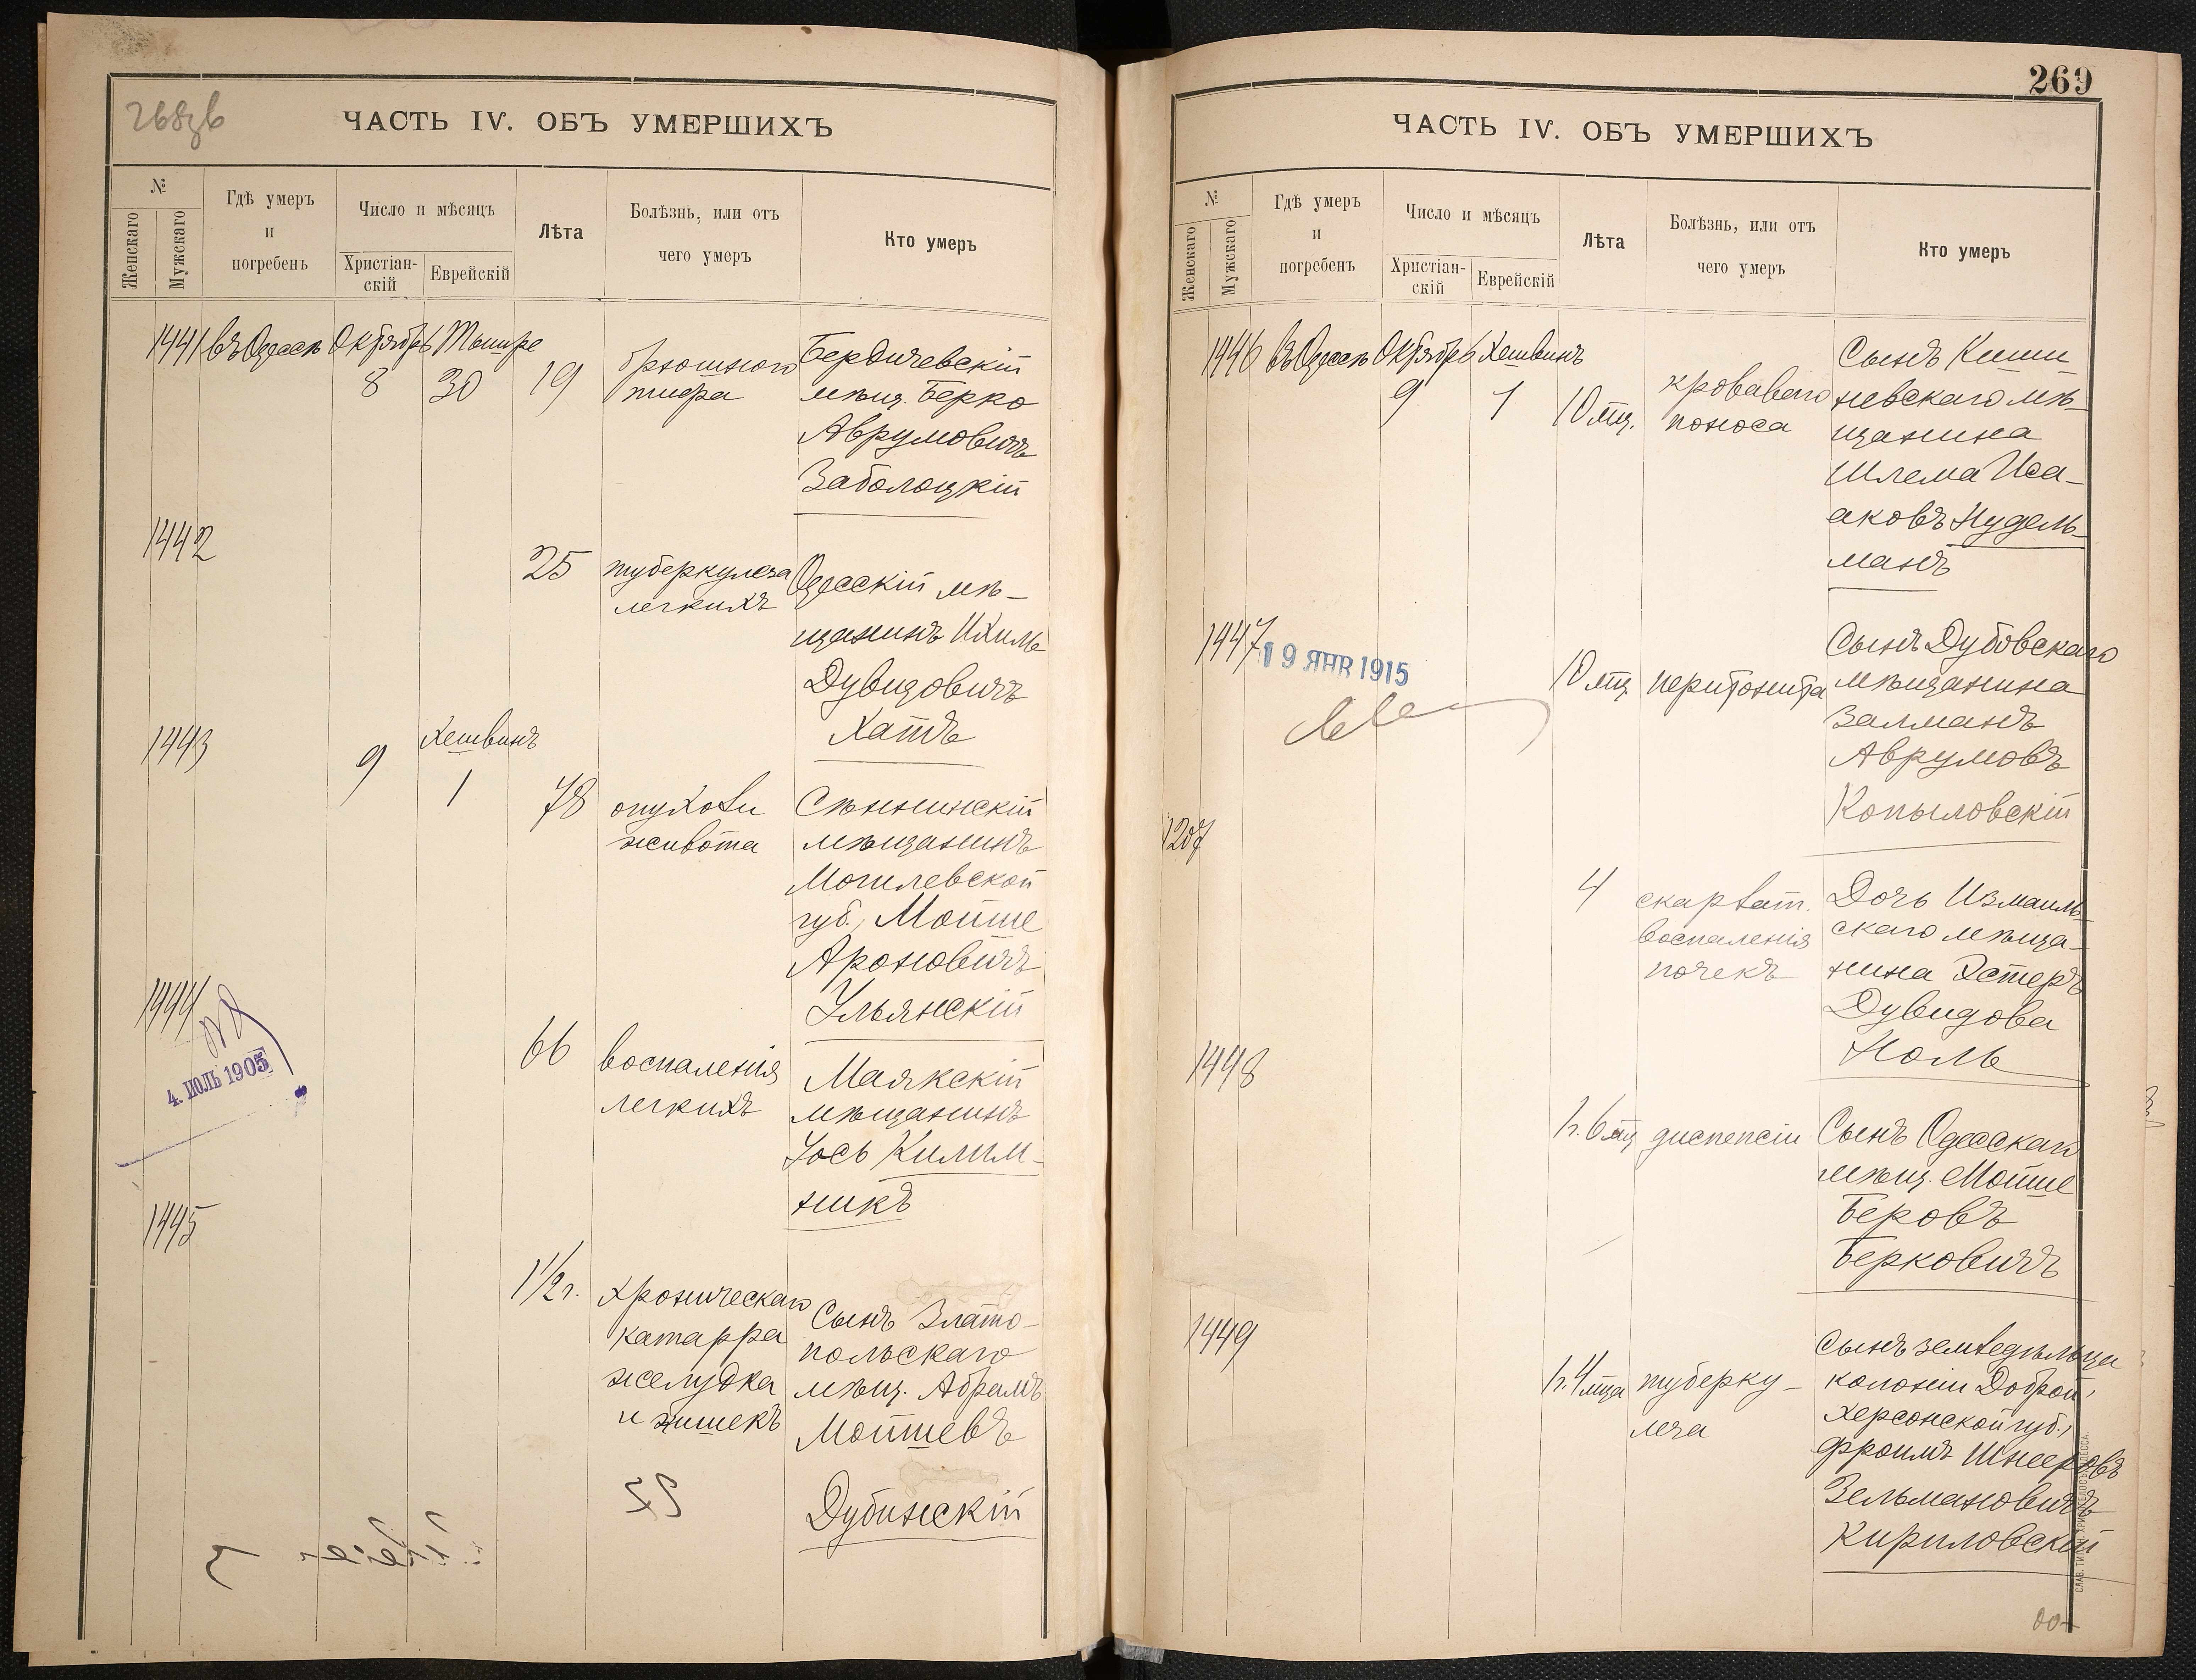 268зв
ЧАСТЬ IV. ОБЪ УМЕРШИХЪ
№
Женскаго
Мужскаго
Гдѣ умеръ
и
погребенъ
Число и мѣсяцъ
Христіан-
скій
Еврейскій
Лѣта
Болѣзнь, или отъ
чего умеръ
Кто умеръ
1441 въ Одессѣ Октябрь Тишре
8 30 19
брюшного
тифа
Бердичевскій
мѣщ. Берко
Аврумовичъ
Заболоцкій
1442
25
туберкулеза
легкихъ
Одесскій мѣ-
щанинъ Ихиль
Дувидовичъ
Катъ
1443
9
Хешвинъ
1
78
опухоли
живота
Сѣннинскій
мѣщанинъ
Могилевской
губ., Мойше
Ароновичъ
Ульянскій
1444
4. ИЮЛЬ 1905
66
воспаленія
легкихъ
Маякскій
мѣщанинъ
Іось Килим-
никъ
1445
1 1/2 г.
хроническаго
катарра
желудка
и кишекъ
Сынъ Злато-
польскаго
мѣщ. Абрамъ
Мойшевъ
Дубинскій
269
ЧАСТЬ IV. ОБЪ УМЕРШИХЪ
№
Женскаго
Мужскаго
Гдѣ умеръ
и
погребенъ
Число и мѣсяцъ
Христіан-
скій
Еврейскій
Лѣта
Болѣзнь, или отъ
чего умеръ
Кто умеръ
1446 въ Одессѣ Октябрь Хешвинъ
9 1 10 мц.
кроваваго
поноса
Сынъ Киши
невскаго мѣ-
щанина
Шлема Иса-
аковъ Нудель-
манъ
1447
19 ЯНВ 1915
10 мц.
перитонита
Сынъ Дубовскаго
мѣщанина
Залманъ
Аврумовъ
Копыловскій
1207
4
скарлат.
воспаленія
почекъ
Дочь Измаиль-
скаго мѣща-
нина Эстеръ
Дувидова
Ноль
1448
1 г. 6 мц
диспепсіи
Сынъ Одесскаго
мѣщ. Мойше
Беровъ
Берковичъ
1449
1 г. 4 мца
туберку-
леза
Сынъ земледѣльца
колоніи Доброй,
Херсонской губ.,
Фроимъ Шнееровъ
Зельмановичъ
Кириловскій